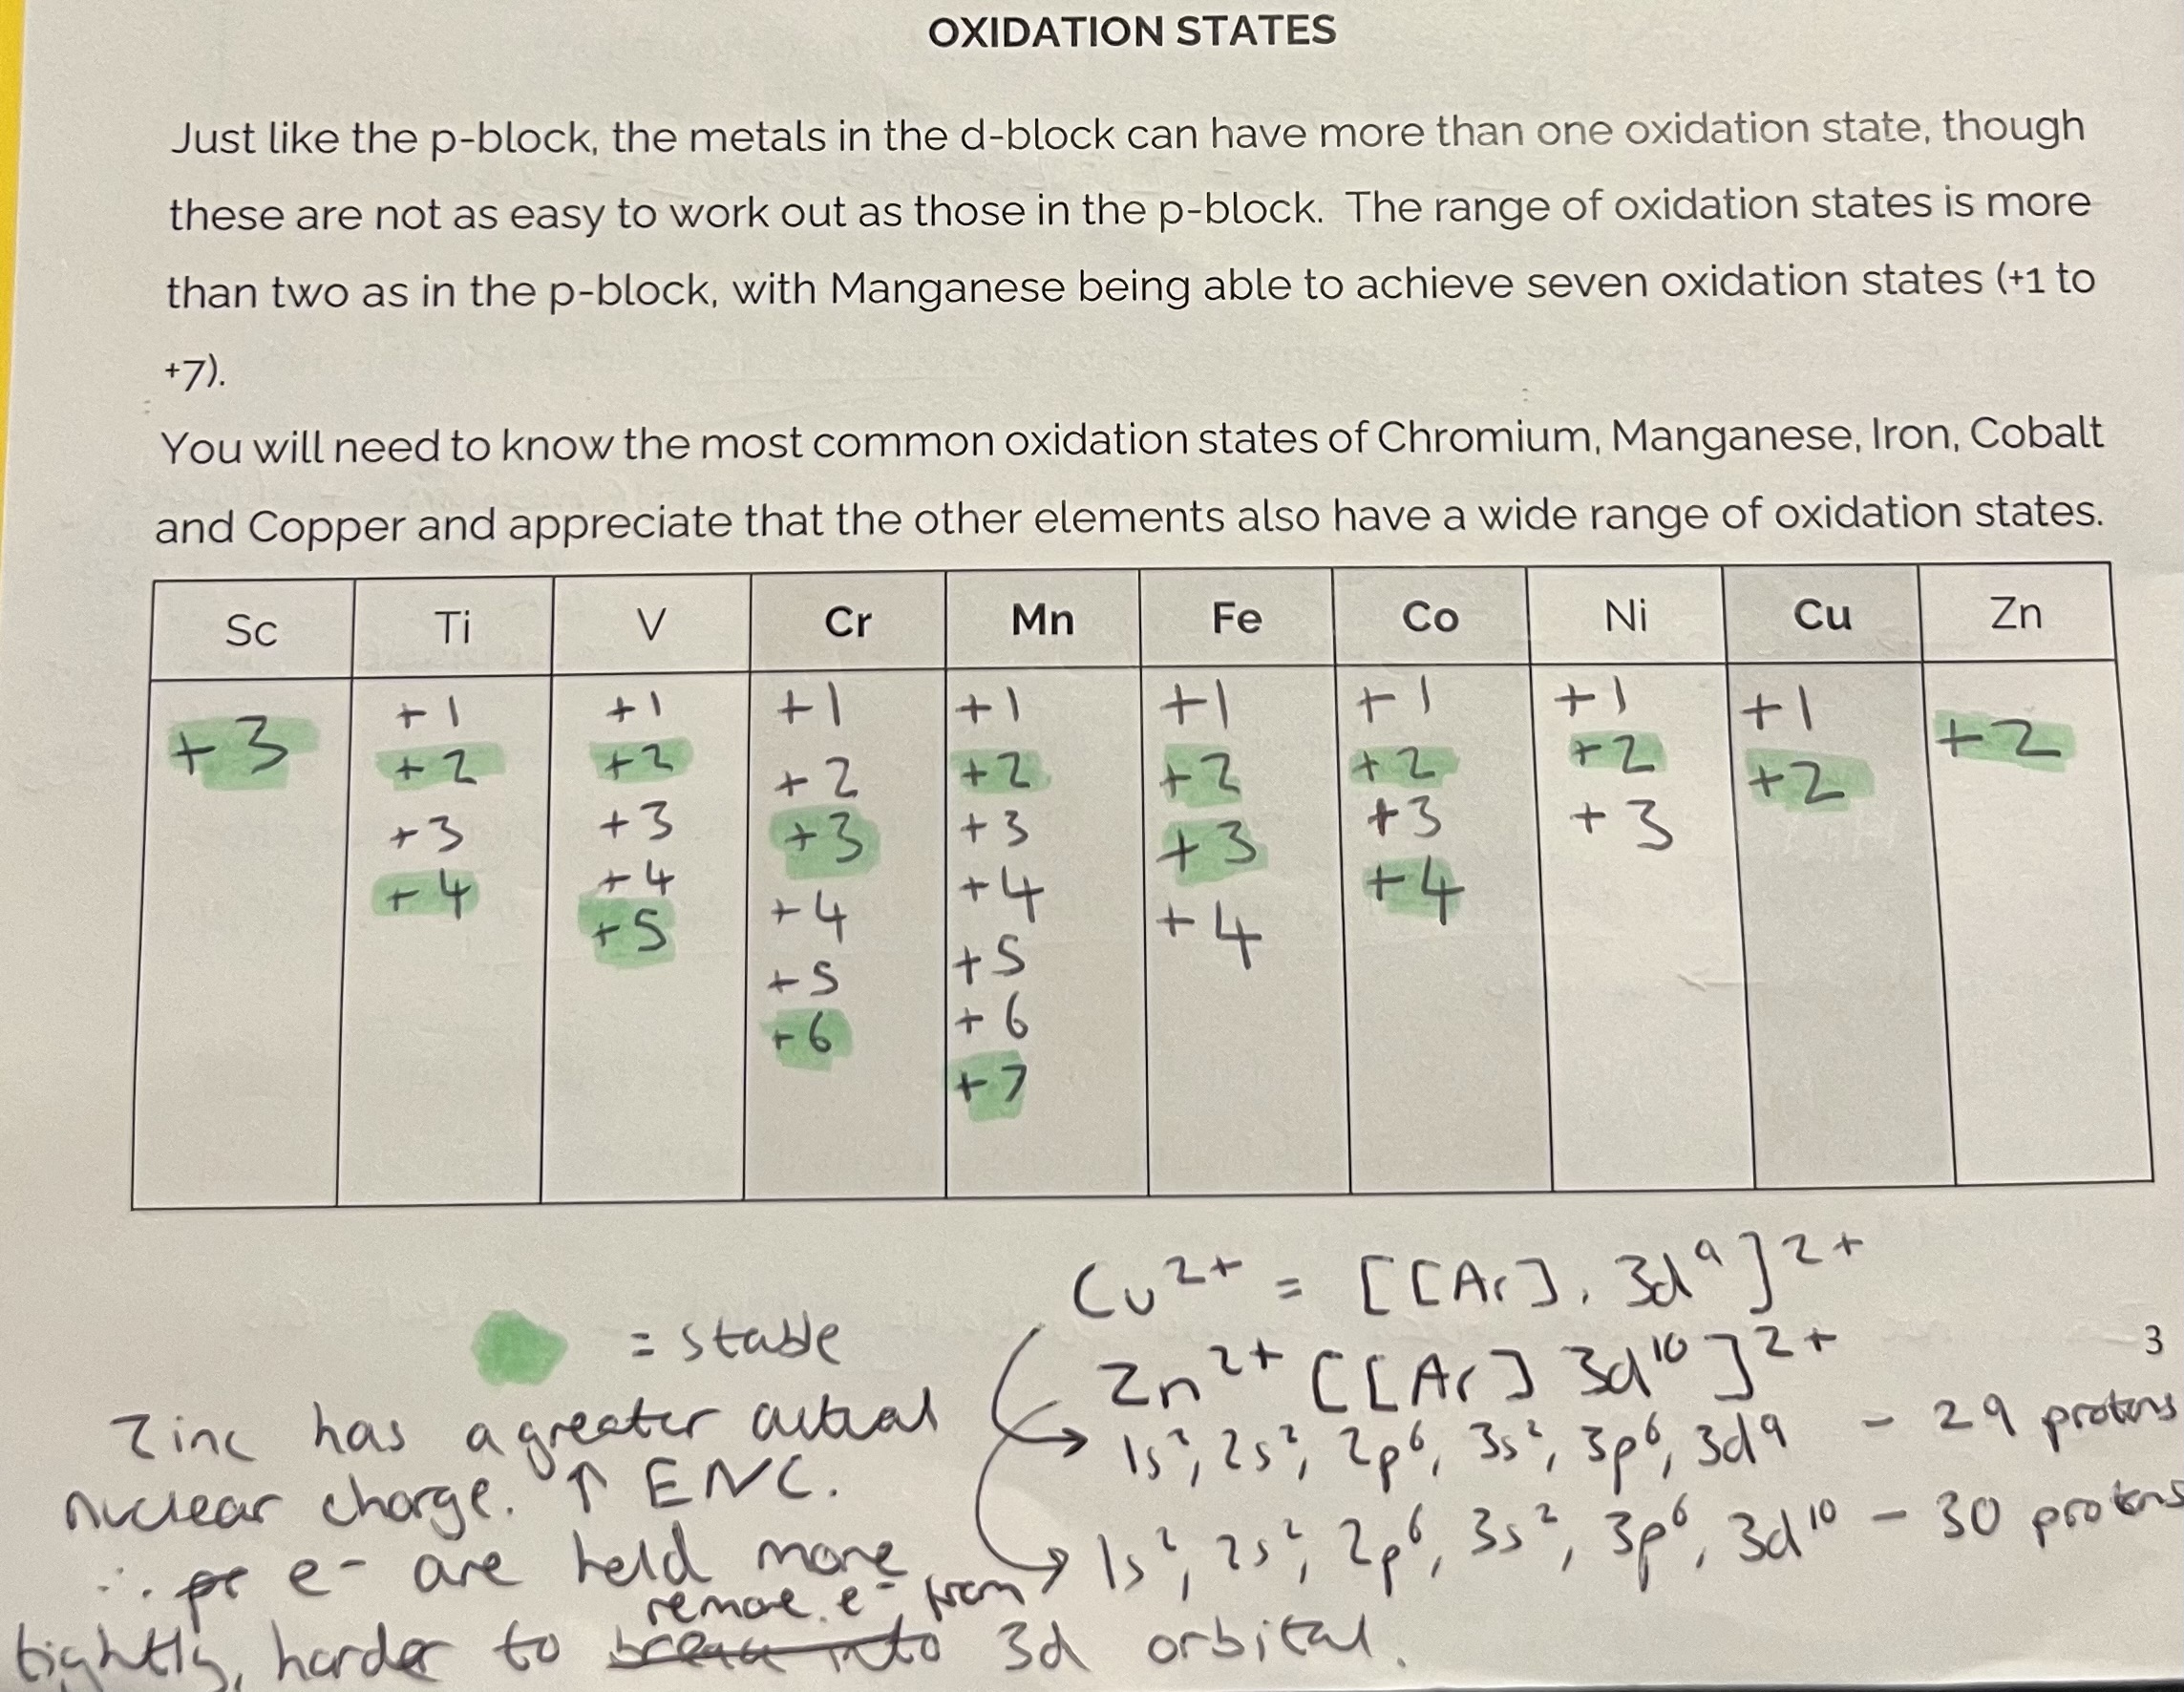 OXIDATION STATES
Just like the p-block, the metals in the d-block can have more than one oxidation state, though
these are not as easy to work out as those in the p-block. The range of oxidation states is more
than two as in the p-block, with Manganese being able to achieve seven oxidation states (+1 to
+7).
You will need to know the most common oxidation states of Chromium, Manganese, Iron, Cobalt
and Copper and appreciate that the other elements also have a wide range of oxidation states.
Sc Ti V Cr Mn Fe Co Ni Cu Zn
+3 +1 +1 +1 +1 +1 +1 +1 +1 +2
+2 +2 +2 +2 +2 +2 +2 +2
+3 +3 +3 +3 +3 +3 +3
+4 +4 +4 +4 +4 +4
+5 +5 +5
+6 +6
+7
Cu²⁺ = [[Ar]. 3d⁹]²⁺
= stable
Zn²⁺ [[Ar] 3d¹⁰]²⁺
3
Zinc has a greater actual
1s², 2s², 2p⁶, 3s², 3p⁶, 3d⁹ - 29 protons
nuclear charge. ↑ ENC.
1s², 2s², 2p⁶, 3s², 3p⁶, 3d¹⁰ - 30 protons
∴ e⁻ are held more
remove e⁻ from
tightly, harder to 3d orbital.